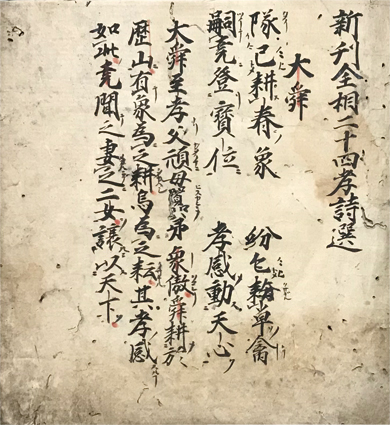 新刊全相二十四孝詩選
大舜
隊〻耕春象 紛〻耘草禽
嗣堯登寳位 孝感動天心
大舜至孝父頑母嚚弟象傲舜耕於
歴山有象為之耕鳥為之耘其孝感
如此堯聞之妻二女譲以天下